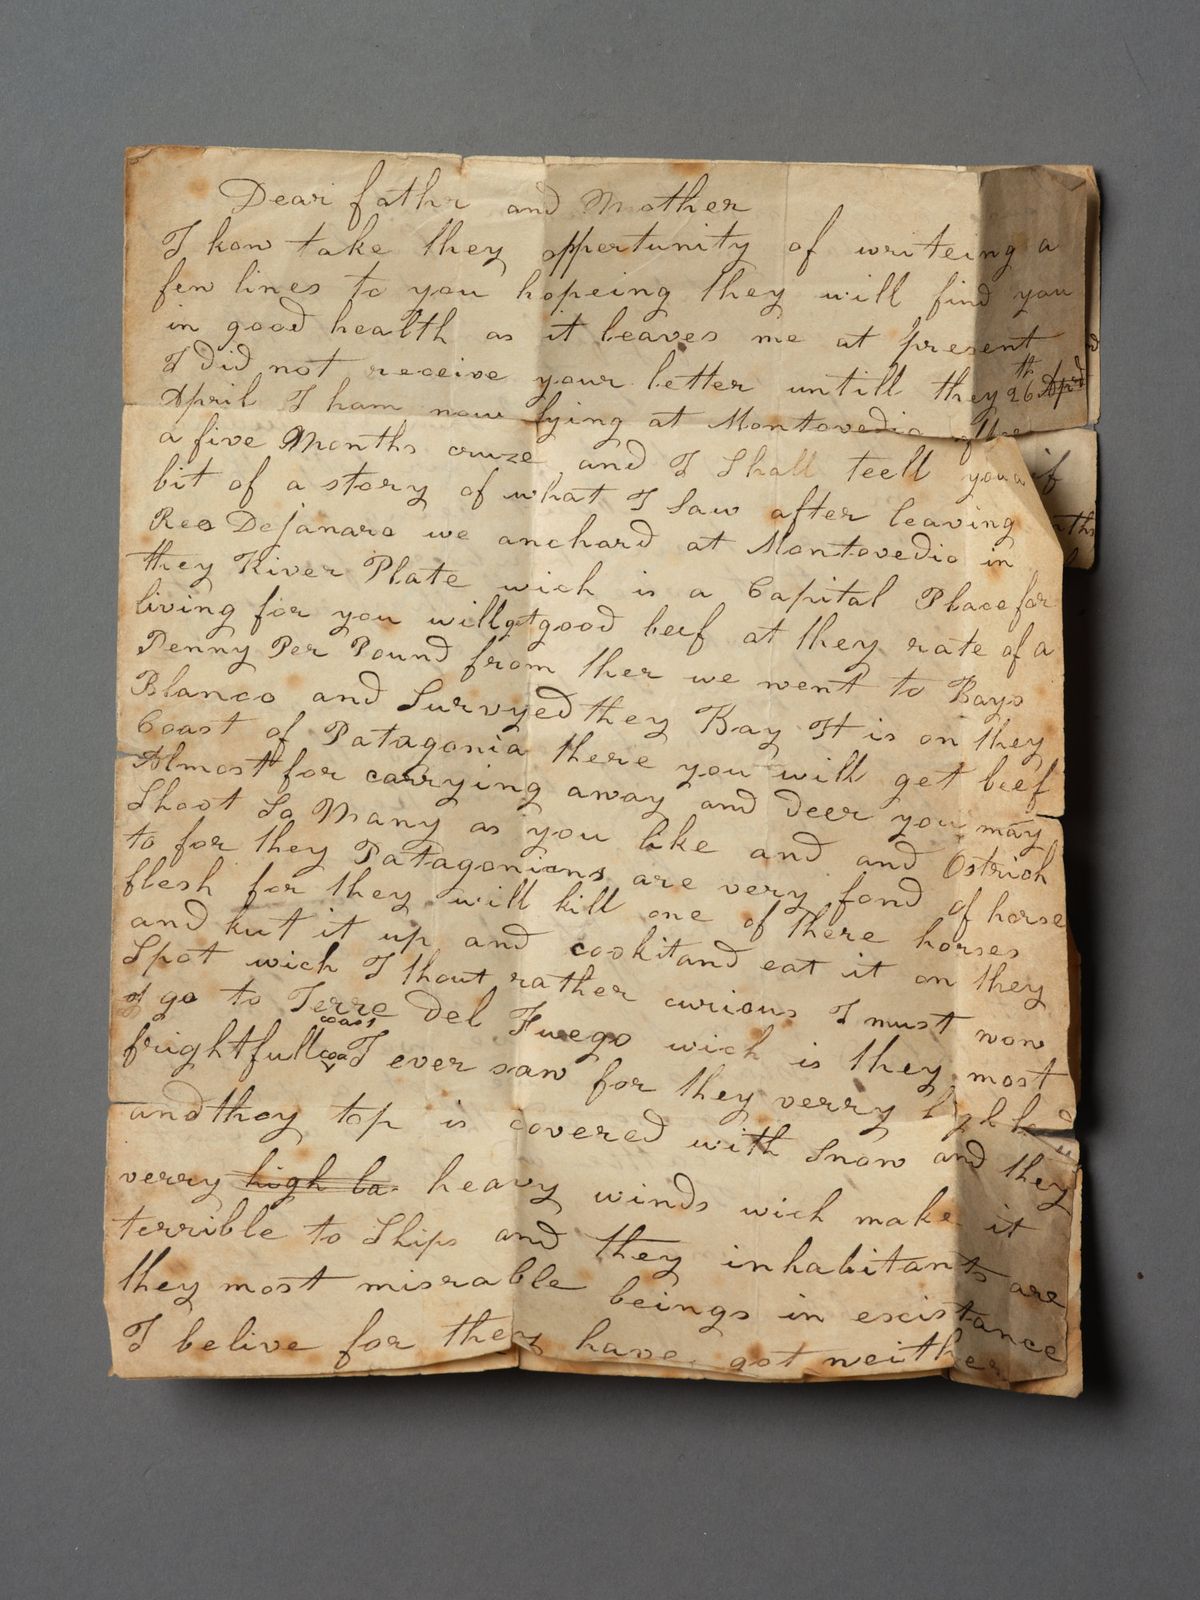 Dear father and Mother
I kow take they oppertunity of writeing a
few lines to you hopeing they will find you
in good health as it leaves me at present
I did not receive your letter untill they 26th
April I ham now lying at Montovedio after
a five Months cruze and I Shall teell you a
bit of a story of what I Saw after leaving
Reo DeJanaro we anchard at Montovedio in
they River Plate wich is a Capital Place for
living for you will get good beef at they rate of a
Penny Per Pound from ther we went to Bays
Blanco and Survyed they Bay It is on they
Coast of Patagonia there you will get beef
Almost for carrying away and deer you may
Shoot So Many as you like and and Ostrich
to for they Patagonians are very fond of horse
flesh for they will kill one of there horses
and kut it up and cookit and eat it on they
Spot wich I thout rather curious I must now
I go to Terre Del Fuego wich is they most
frightfull coast I ever saw for they verry
and they top is covered with Snow and they
verry high la heavy winds wich make it
terrible to Ships and they inhabitants are
they most misrable beings in excistance
I belive for they have got neither